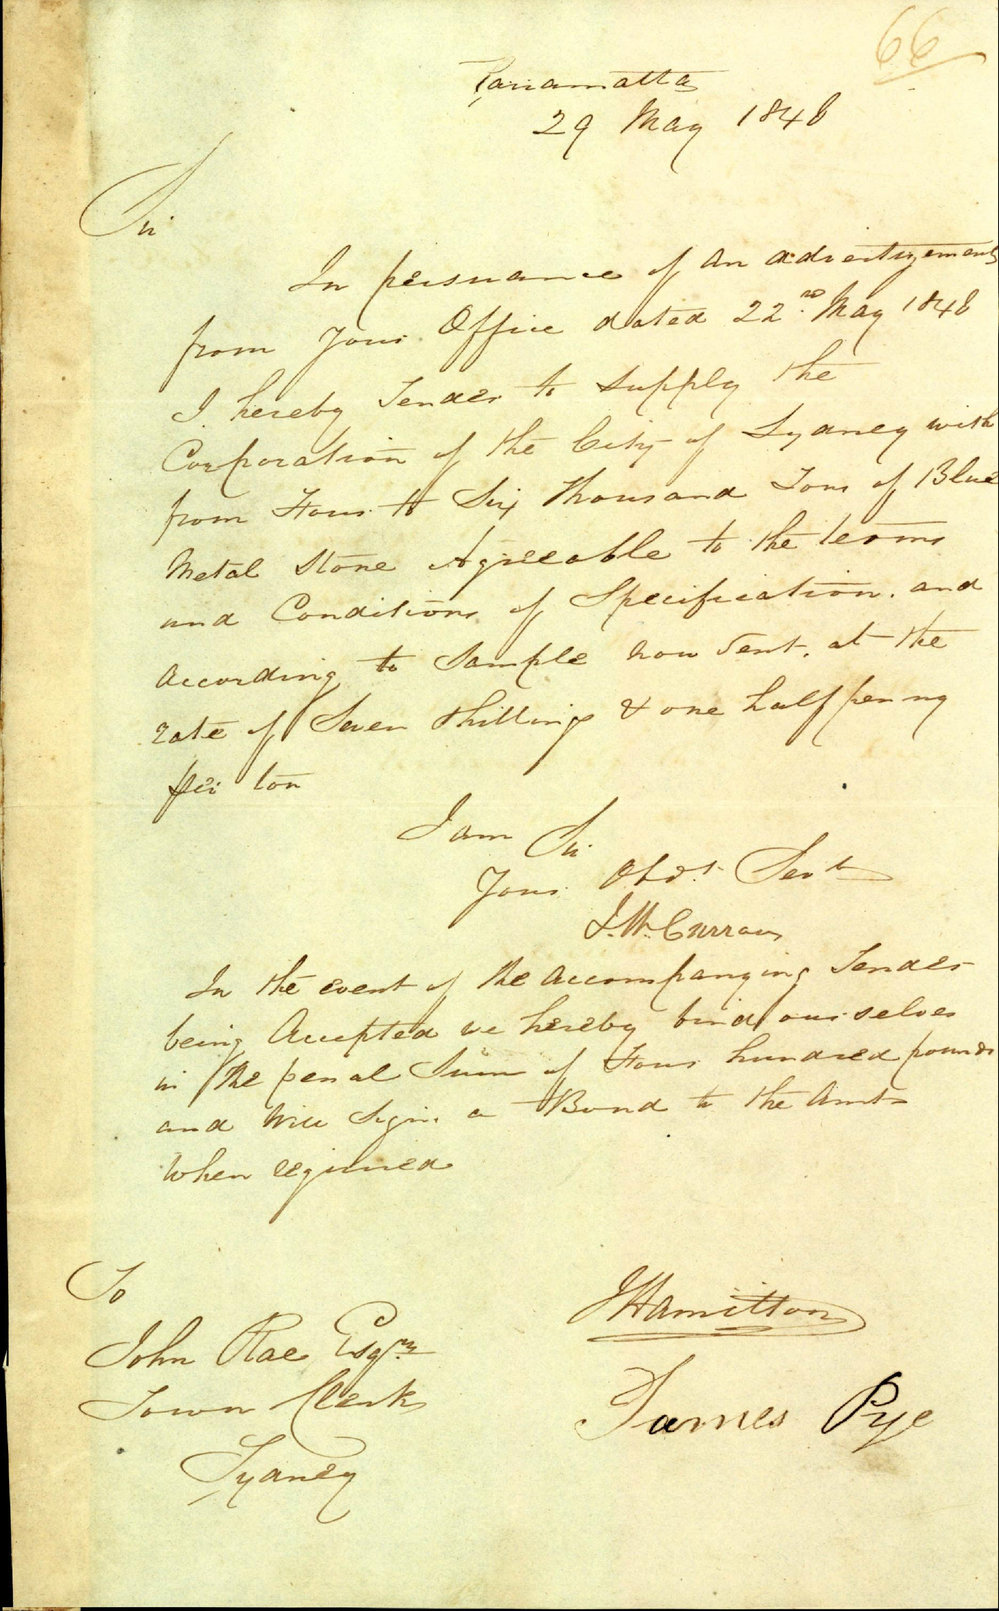 66
Parramatta
29 May 1848
Sir
In persuance of An advertizement
from Your Office dated 22nd. May 1848
I hereby Tender to Supply the
Corporation of the City of Sydney with
from Four to Six Thousand Tons of Blue
Metal Stone Agreeable to the terms
and Conditions of Specification. and
According to Sample now Sent. at the
rate of Seven Shillings & one half penny
per ton
I am Sir
Your Obdt. Servt
J. W. Curran
In the event of the Accompanying Tender
being Accepted we hereby bind ourselves
in the penal Sum of Four hundred pounds
and Will Sign a Bond to the Amt
When required
To
John Rae Esqr.
Town Clerk
Sydney
J Hamilton
James Pye